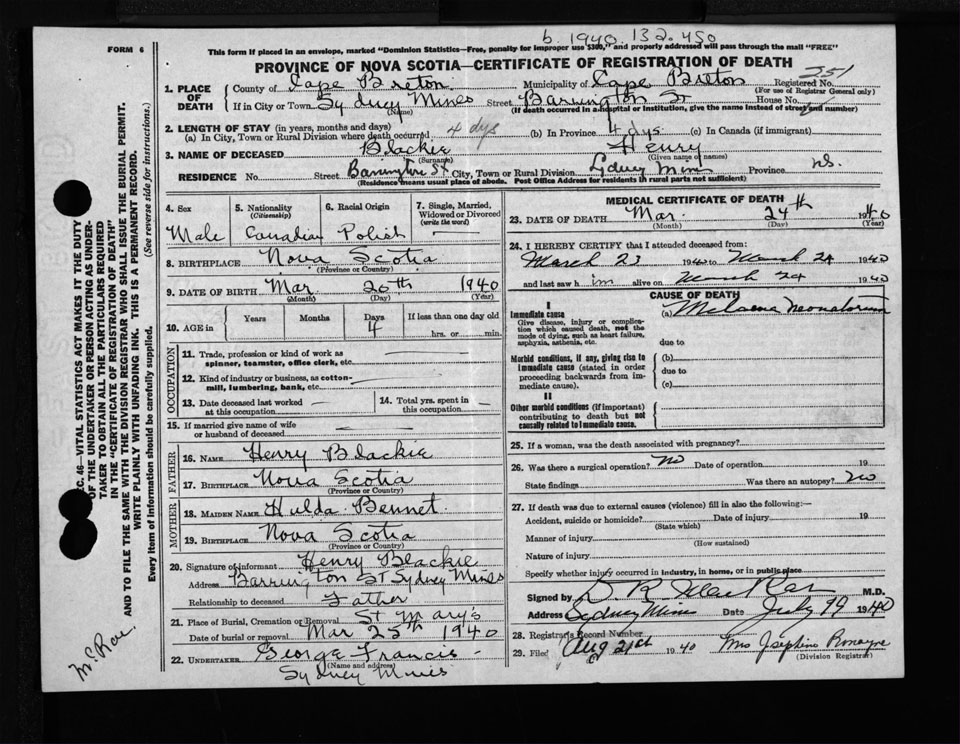 b. 1940. 132. 450
FORM 6
This form if placed in an envelope, marked "Dominion Statistics—Free, penalty for improper use $300," and properly addressed will pass through the mail "FREE"
PROVINCE OF NOVA SCOTIA—CERTIFICATE OF REGISTRATION OF DEATH
1. PLACE OF DEATH County of Cape Breton Municipality of Cape Breton Registered No. 251
(For use of Registrar General only)
If in City or Town Sydney Mines Street Barrington St House No.
(Name) (If death occurred in a hospital or institution, give the name instead of street and number)
2. LENGTH OF STAY (in years, months and days)
(a) In City, Town or Rural Division where death occurred 4 dys (b) In Province 4 dys. (c) In Canada (if immigrant)
3. NAME OF DECEASED Blackie Henry
(Surname) (Given name or names)
RESIDENCE No. Street Barrington St City, Town or Rural Division Sydney Mines Province N.S.
(Residence means usual place of abode. Post Office Address for residents in rural parts not sufficient)
4. Sex 5. Nationality (Citizenship) 6. Racial Origin 7. Single, Married, Widowed or Divorced (write the word)
Male Canadian Polish
8. BIRTHPLACE Nova Scotia
(Province or Country)
9. DATE OF BIRTH Mar 20th 1940
(Month) (Day) (Year)
10. AGE in Years Months Days 4 If less than one day old
hrs. or min.
OCCUPATION
11. Trade, profession or kind of work as spinner, teamster, office clerk, etc.
12. Kind of industry or business, as cotton-mill, lumbering, bank, etc.
13. Date deceased last worked at this occupation 14. Total yrs. spent in this occupation
15. If married give name of wife or husband of deceased
FATHER
16. NAME Henry Blackie
17. BIRTHPLACE Nova Scotia
(Province or Country)
MOTHER
18. MAIDEN NAME Hulda Bennet
19. BIRTHPLACE Nova Scotia
(Province or Country)
20. Signature of informant Henry Blackie
Address Barrington St Sydney Mines
Relationship to deceased Father
21. Place of Burial, Cremation or Removal St Mary's
Date of burial or removal Mar 25th 1940
22. UNDERTAKER George Francis
(Name and address)
Sydney Mines
MEDICAL CERTIFICATE OF DEATH
23. DATE OF DEATH Mar. 24th 1940
(Month) (Day) (Year)
24. I HEREBY CERTIFY that I attended deceased from:
March 23 1940 to March 24 1940
and last saw him alive on March 24 1940
CAUSE OF DEATH
I
Immediate cause (a) Melaena Neonatorum
Give disease, injury or complication which caused death, not the mode of dying, such as heart failure, asphyxia, asthenia, etc.
due to
Morbid conditions, if any, giving rise to immediate cause (stated in order proceeding backwards from immediate cause).
(b)
due to
(c)
II
Other morbid conditions (if important) contributing to death but not causally related to immediate cause.
25. If a woman, was the death associated with pregnancy?
26. Was there a surgical operation? No Date of operation 19
State findings Was there an autopsy? No
27. If death was due to external causes (violence) fill in also the following:—
Accident, suicide or homicide? Date of injury 19
(State which)
Manner of injury
(How sustained)
Nature of injury
Specify whether injury occurred in industry, in home, or in public place
Signed by M.D.
Address Sydney Mines Date July 1940
28. Registrar's Record Number
29. Filed Aug 21st 1940 Mrs Josephine Ronayne
(Division Registrar)
SEC. 46—VITAL STATISTICS ACT MAKES IT THE DUTY
OF THE UNDERTAKER OR PERSON ACTING AS UNDERTAKER
TO OBTAIN ALL THE PARTICULARS REQUIRED
IN THE "CERTIFICATE OF REGISTRATION OF DEATH"
AND TO FILE THE SAME WITH THE DIVISION REGISTRAR WHO SHALL ISSUE THE BURIAL PERMIT.
WRITE PLAINLY WITH UNFADING INK. THIS IS A PERMANENT RECORD.
Every item of information should be carefully supplied. (See reverse side for instructions.)
McRae.